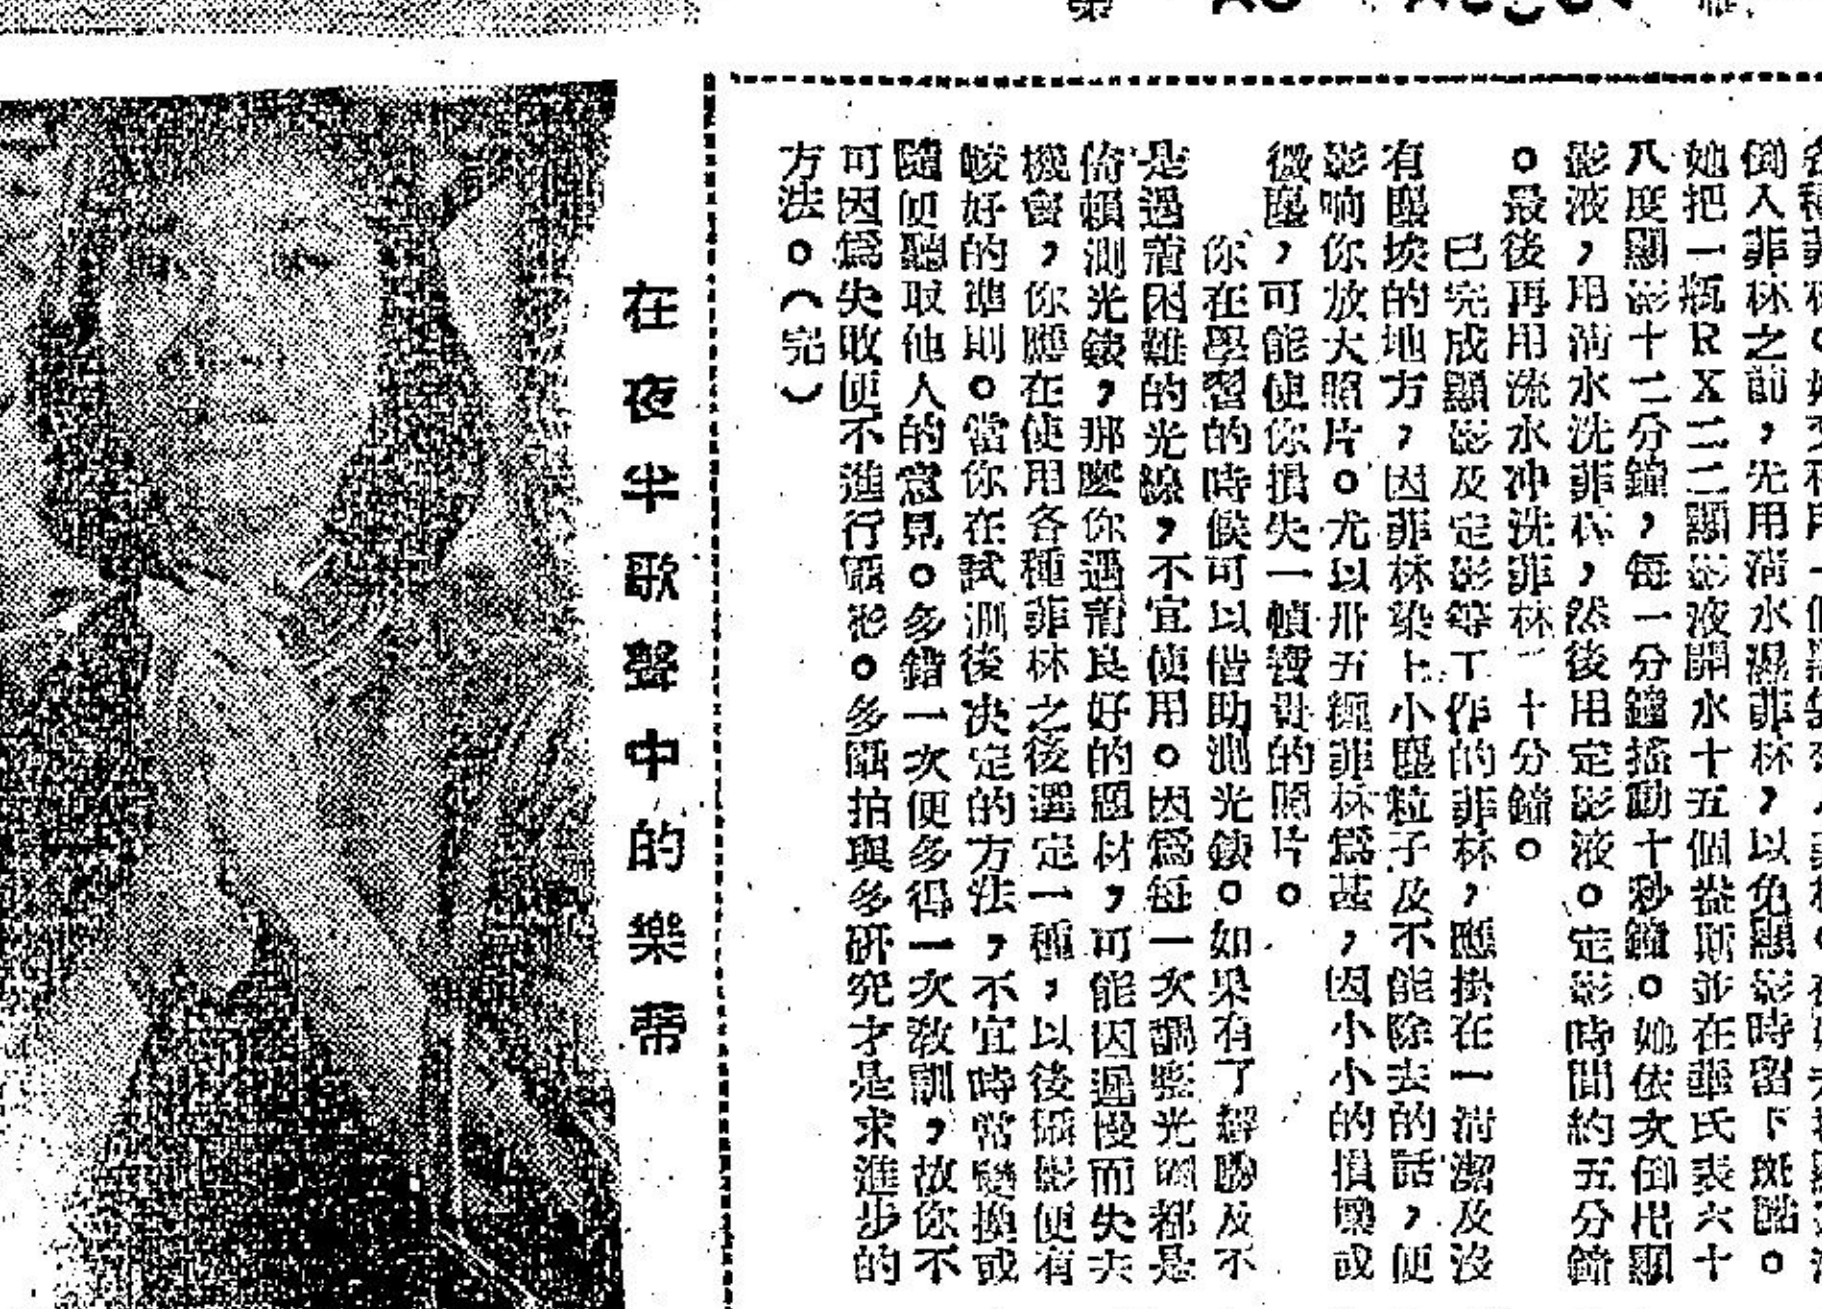 倒入菲林之前，先用清水濕菲林，以免顯影時留下斑點。
她把一瓶RX二二顯影液開水十五個益斯並在華氏表六十
八度顯影十二分鐘，每一分鐘搖動十秒鐘。她依次倒出顯
影液，用清水洗菲林，然後用定影液。定影時間約五分鐘
。最後再用流水冲洗菲林二十分鐘。
已完成顯影及定影等工作的菲林，應掛在一清潔及沒
有塵埃的地方，因菲林染上小塵粒子及不能除去的話，便
影响你放大照片。尤以卅五糎菲林爲甚，因小小的損壞或
微塵，可能使你損失一幀寶貴的照片。
你在學習的時候可以借助測光錶。如果有了解勝及不
是遇着困難的光線，不宜使用。因爲每一次調整光圈都是
倚賴測光錶，那麼你遇着良好的題材，可能因遲慢而失去
機會，你應在使用各種菲林之後選定一種，以後攝影便有
較好的準則。當你在試測後决定的方法，不宜時常變換或
隨便聽取他人的意見。多錯一次便多得一次教訓，故你不
可因爲失敗便不進行攝影。多攝拍與多研究才是求進步的
方法。（完）
在夜半歌聲中的樂蒂